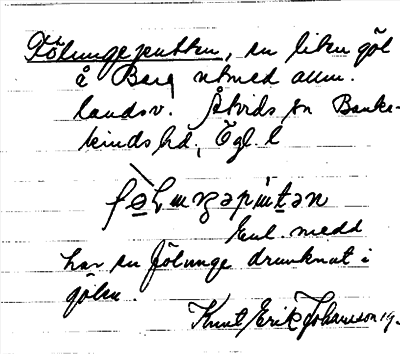 Fölungeputten, en liten göl
å Berg utmed allm.
landsv. Åtvids sn Banke-
kinds hd, Ögl. l
Enl. medd
har en fölunge drunknat i
gölen.
Knut Erik Johansson 19.